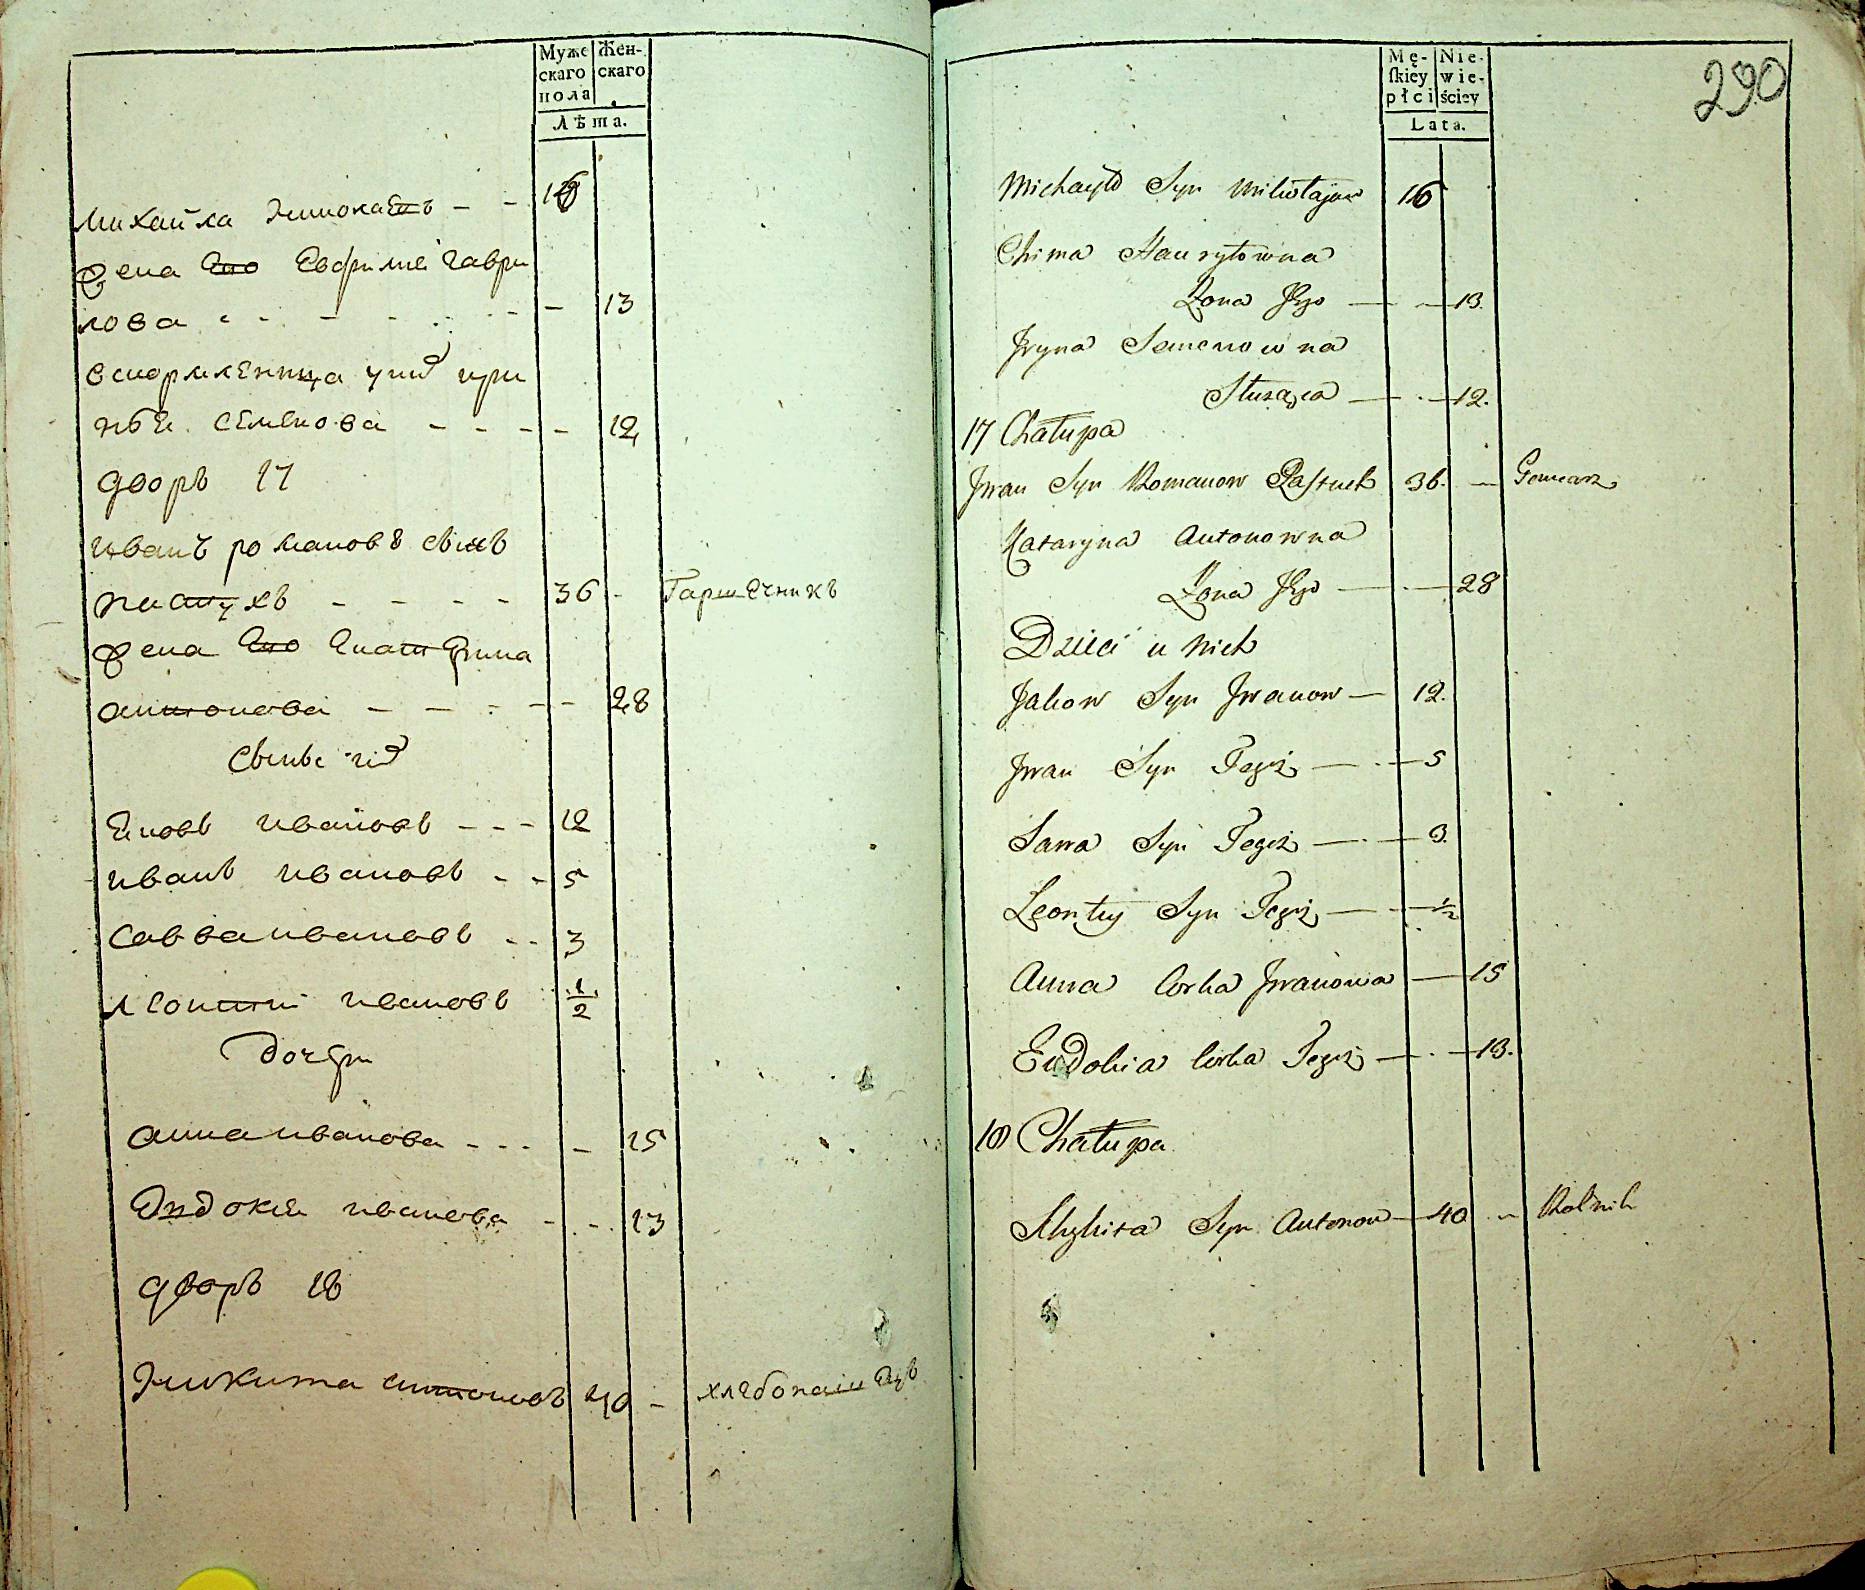 Муже
скаго
пола
Жен-
скаго
Лѣта.
Михайла Николаевъ - - 16
жена его Евфимиѣ гаври
лова - - - - 13
вскормленница у них ири
нья семенова - - - - 12
дворъ 17
иванъ романовъ сынъ
пастухъ - - - - 36 - Гаршечникъ
жена его Екатерина
антонова - - - - 28
Сынье их
Яковъ ивановъ - - - 12
иванъ ивановъ - - 5
савва ивановъ - - 3
леонтиі ивановъ 1/2
дочери
анна иванова - - - - 15
Эвдокия иванова - - - 13
дворъ 18
Никита антоновъ 40 - хлебопашецъ
Mę-
skiey
płci
Nie-
wie-
ściey
Lata.
290
Michayło Syn Mikołajow 16
Chima Hawryłowna
Zona Jego — — 13.
Jryna Semenowna
Służąca — — 12.
17 Chałupa
Jwan Syn Romanow Pastuch 36. — Goncarz
Kataryna Antonowna
Zona Jego — — 28
Dzieci u nich
Jakow Syn Jwanow — 12.
Jwan Syn Tegoż — — 5
Sawa Syn Tegoż — — 3.
Leonty Syn Tegoż — — 1/2
Anna Corka Jwanowa — 15
Eudokia Corka Tegoż — — 13.
18 Chałupa
Mykita Syn Antonow — 40 — Rolnik